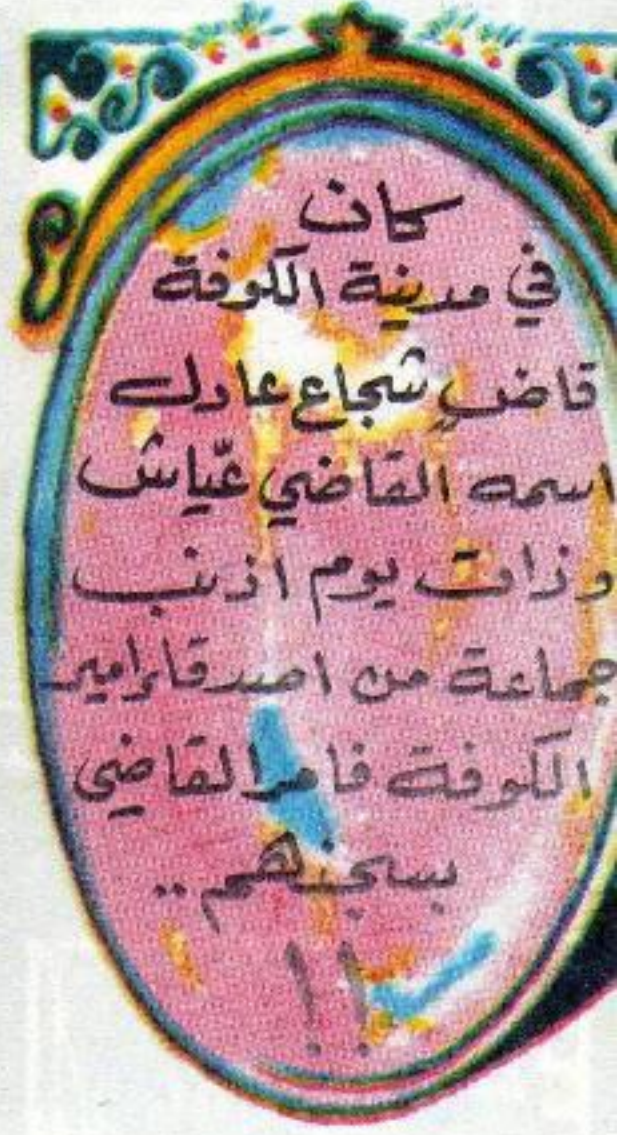 كان
في مدينة الكوفة
قاضٍ شجاع عادل
اسمه القاضي عيّاش
وذات يوم اذنب
جماعة من اصدقاء امير
الكوفة فامر القاضي
بسجنهم ..
!!